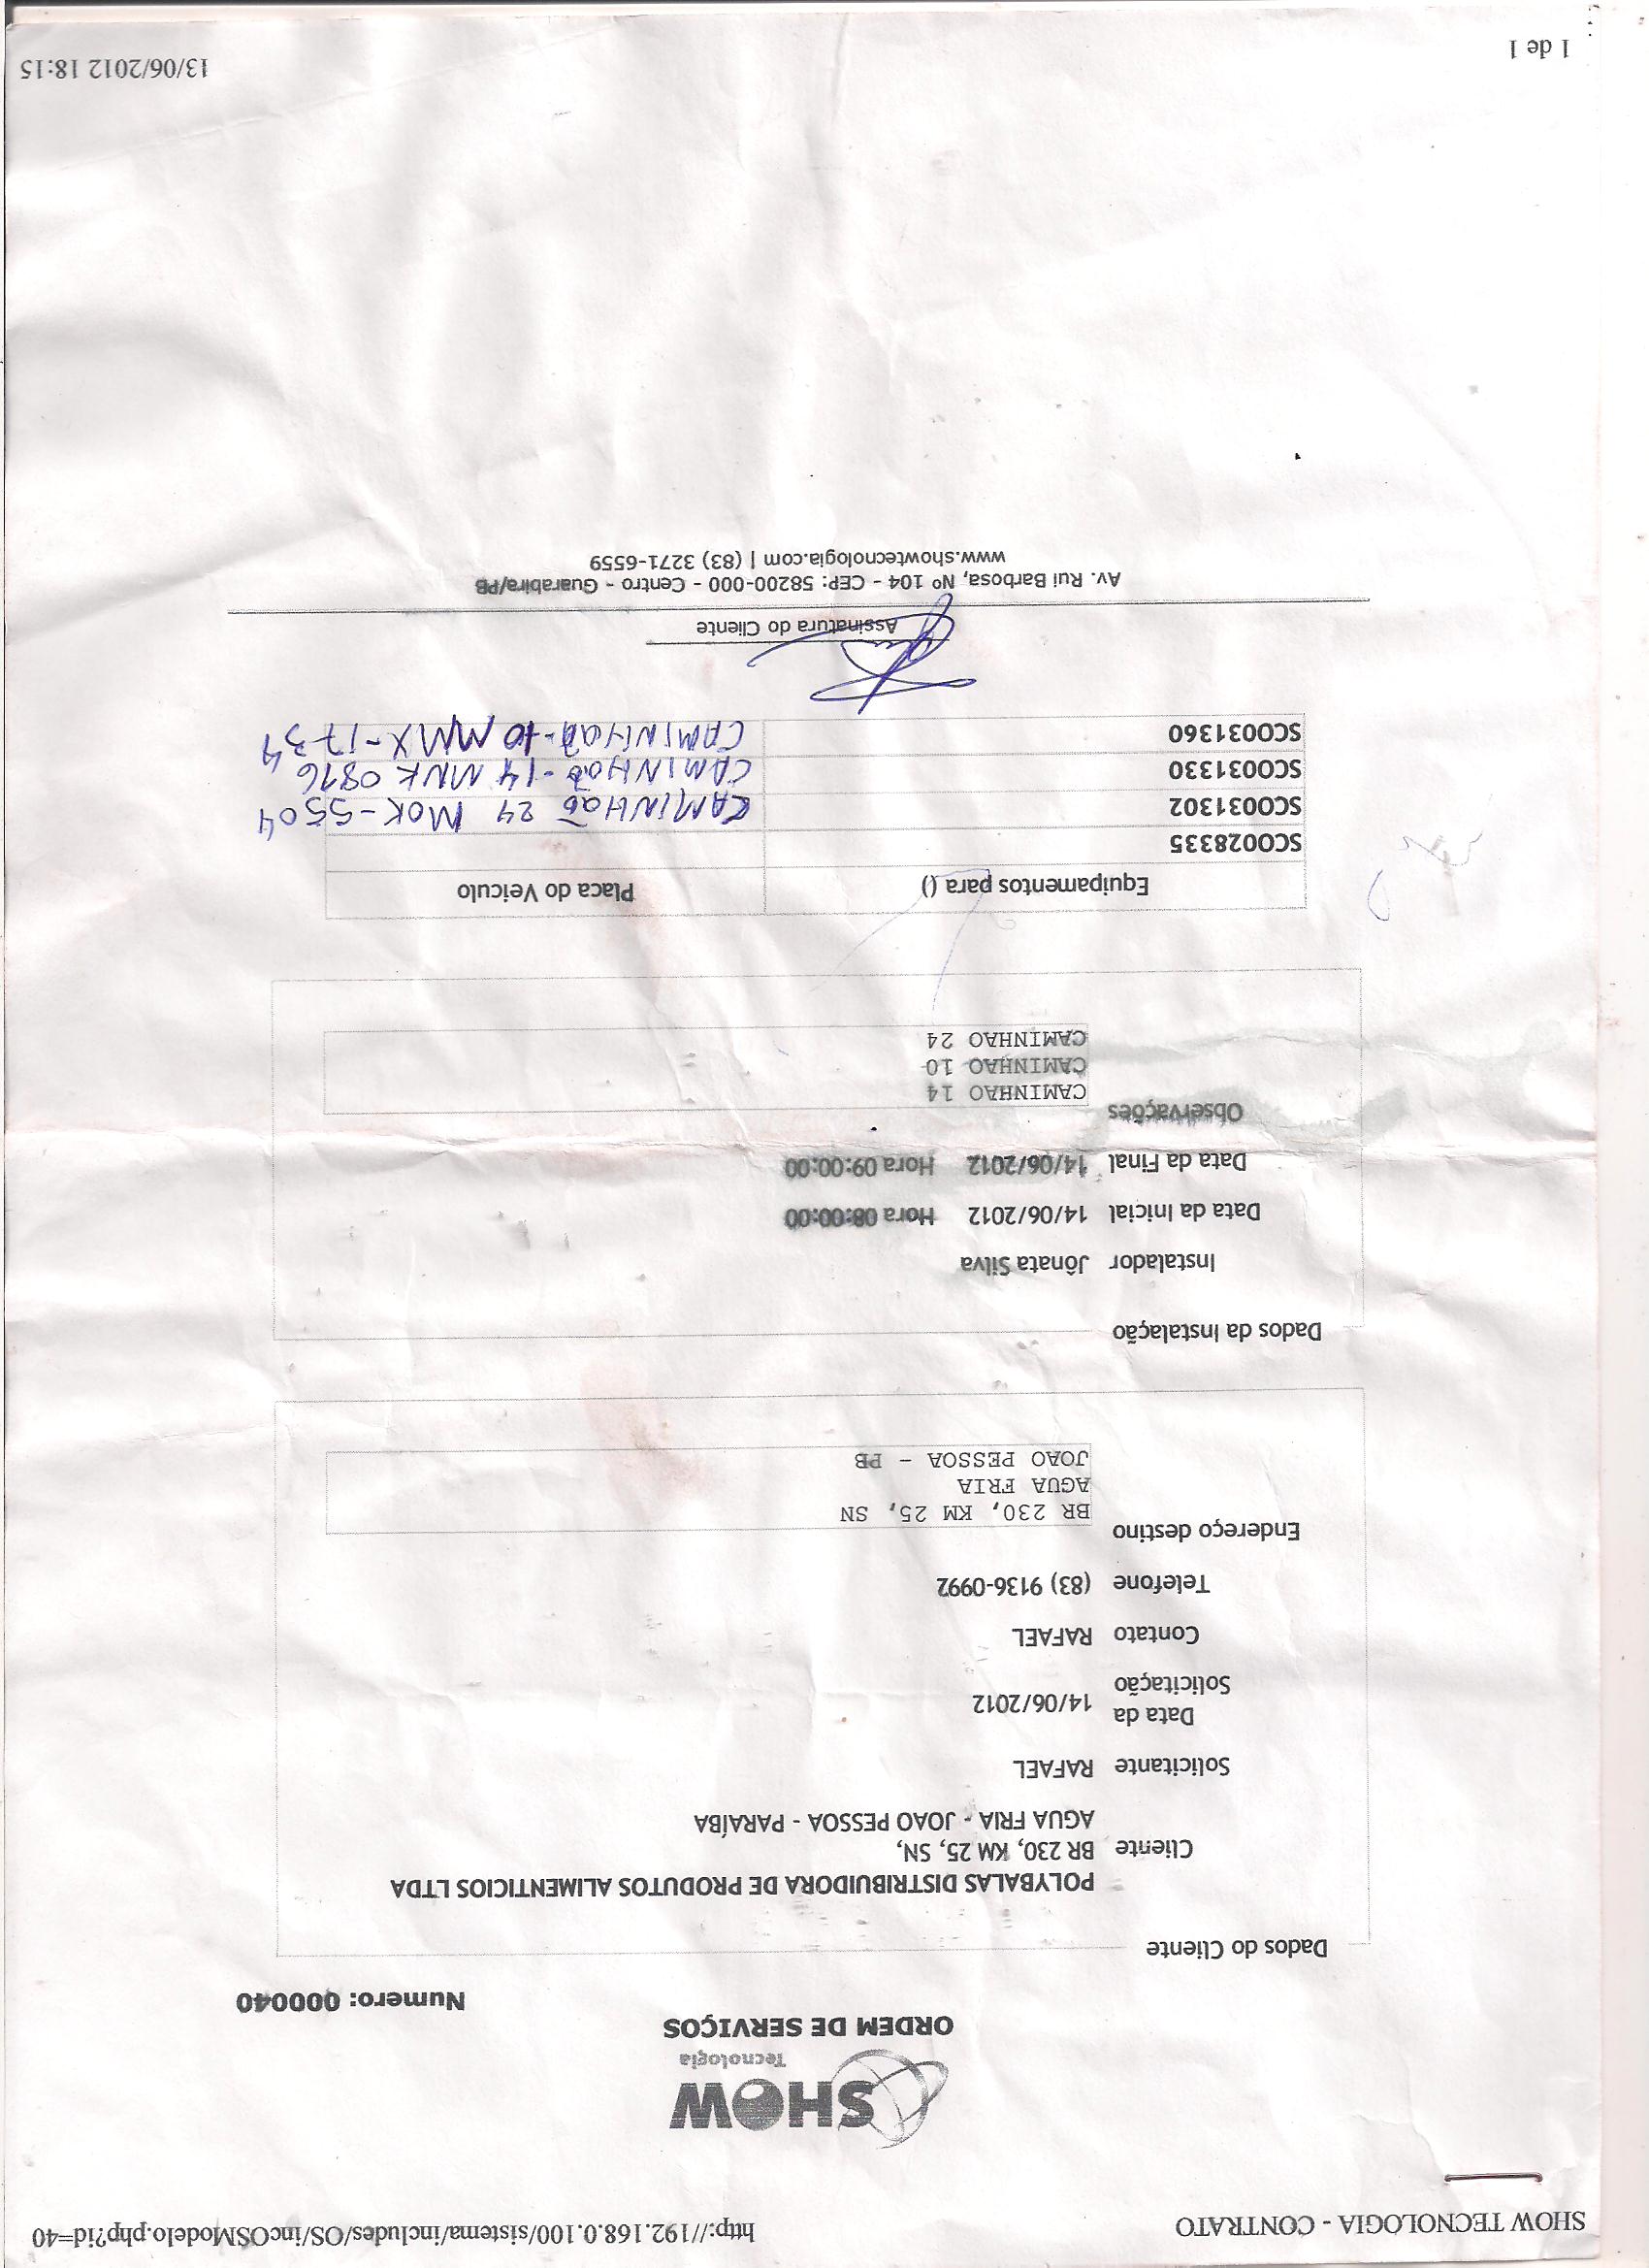 SHOW TECNOLOGIA - CONTRATO http://192.168.0.100/sistema/includes/OS/incOSModelo.php?id=40
SHOW
Tecnologia
ORDEM DE SERVIÇOS
Numero: 000040
Dados do Cliente
POLYBALAS DISTRIBUIDORA DE PRODUTOS ALIMENTICIOS LTDA
Cliente BR 230, KM 25, SN,
AGUA FRIA - JOAO PESSOA - PARAÍBA
Solicitante RAFAEL
Data da Solicitação 14/06/2012
Contato RAFAEL
Telefone (83) 9136-0992
Endereço destino
BR 230, KM 25, SN
AGUA FRIA
JOAO PESSOA - PB
Dados da Instalação
Instalador Jônata Silva
Data da Inicial 14/06/2012 Hora 08:00:00
Data da Final 14/06/2012 Hora 09:00:00
Observações
CAMINHAO 14
CAMINHAO 10
CAMINHAO 24
Equipamentos para () Placa do Veiculo
SC0028335
SC0031302 CAMINHAÕ 24 MOK-5504
SC0031330 CAMINHAÕ-14 MNK 0816
SC0031360 CAMINHAÕ-10 MMX-1734
Assinatura do Cliente
Av. Rui Barbosa, Nº 104 - CEP: 58200-000 - Centro - Guarabira/PB
www.showtecnologia.com | (83) 3271-6559
1 de 1 13/06/2012 18:15